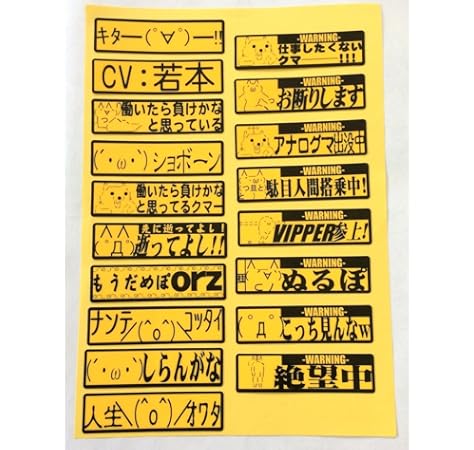 キター(゚∀゚)ー!!
CV:若本
働いたら負けかな
と思っている
(´・ω・`)ショボーン
働いたら負けかな
と思ってるクマー
先に逝ってよし!
逝ってよし!!
もうだめぽorz
ナンテ/(^o^)\コッタイ
(´・ω・`)しらんがな
人生\(^o^)/オワタ
-WARNING-
仕事したくない
クマ───!!!
-WARNING-
お断りします
-WARNING-
アナログマ出没中
-WARNING-
駄目人間搭乗中!
-WARNING-
VIPPER参上!
-WARNING-
ぬるぽ
-WARNING-
(゚Д゚)こっち見んなw
-WARNING-
絶望中